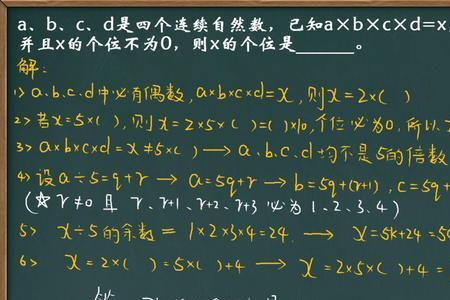 a、b、c、d是四个连续自然数，已知a×b×c×d=x
并且x的个位不为0，则x的个位是______。
解:
1> a.b.c.d中必有偶数, a×b×c×d=x, 则x=2×( )
2> 若x=5×( ), 则x=2×5×( )=( )×10, 个位必为0, 所以
3> a×b×c×d=x≠5×( ) → a.b.c.d均不是5的倍数
4> 设a÷5=q+r → a=5q+r → b=5q+(r+1), c=5q+
(☆ r≠0 且 r、r+1、r+2、r+3 必为 1、2、3、4)
5> x÷5的余数 = 1×2×3×4=24 → x=5k+24=5
6> x=2×( )=5×( )+4 → x=2×5×( )+4=